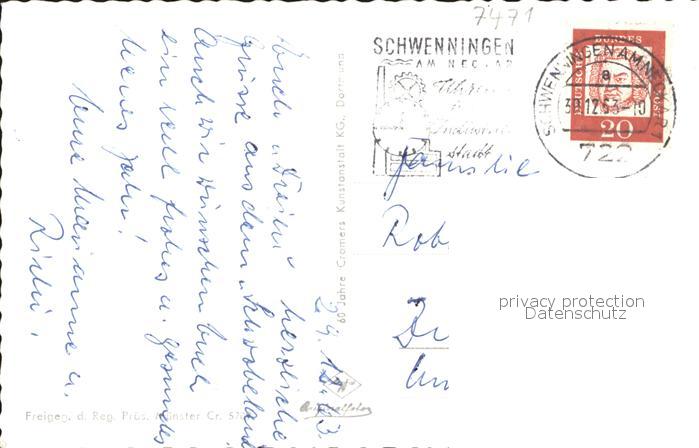 7471
SCHWENNINGEN
AM NECKAR
Uhren
Industrie
stadt
SCHWENNINGEN AM NECKAR 1
a
30.12.63-10
722
DEUTSCHE BUNDESPOST
20
29. 12. 63
Euch "Dreien" herzliche
Grüsse aus dem "Schwabenland
Auch wir wünschen Euch
ein recht frohes u. gesundes
neues Jahr!
Eure Marianne u.
Familie
Rob
privacy protection
Datenschutz
60 Jahre Cramers Kunstanstalt KG., Dortmund
Freigeg. d. Reg. Präs. Münster Cr. 57